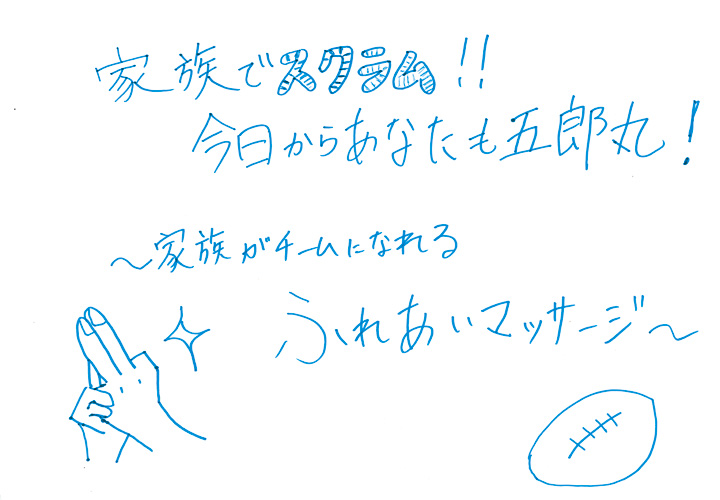 家族でスクラム!!
今日からあなたも五郎丸!
～家族がチームになれる
ふれあいマッサージ～